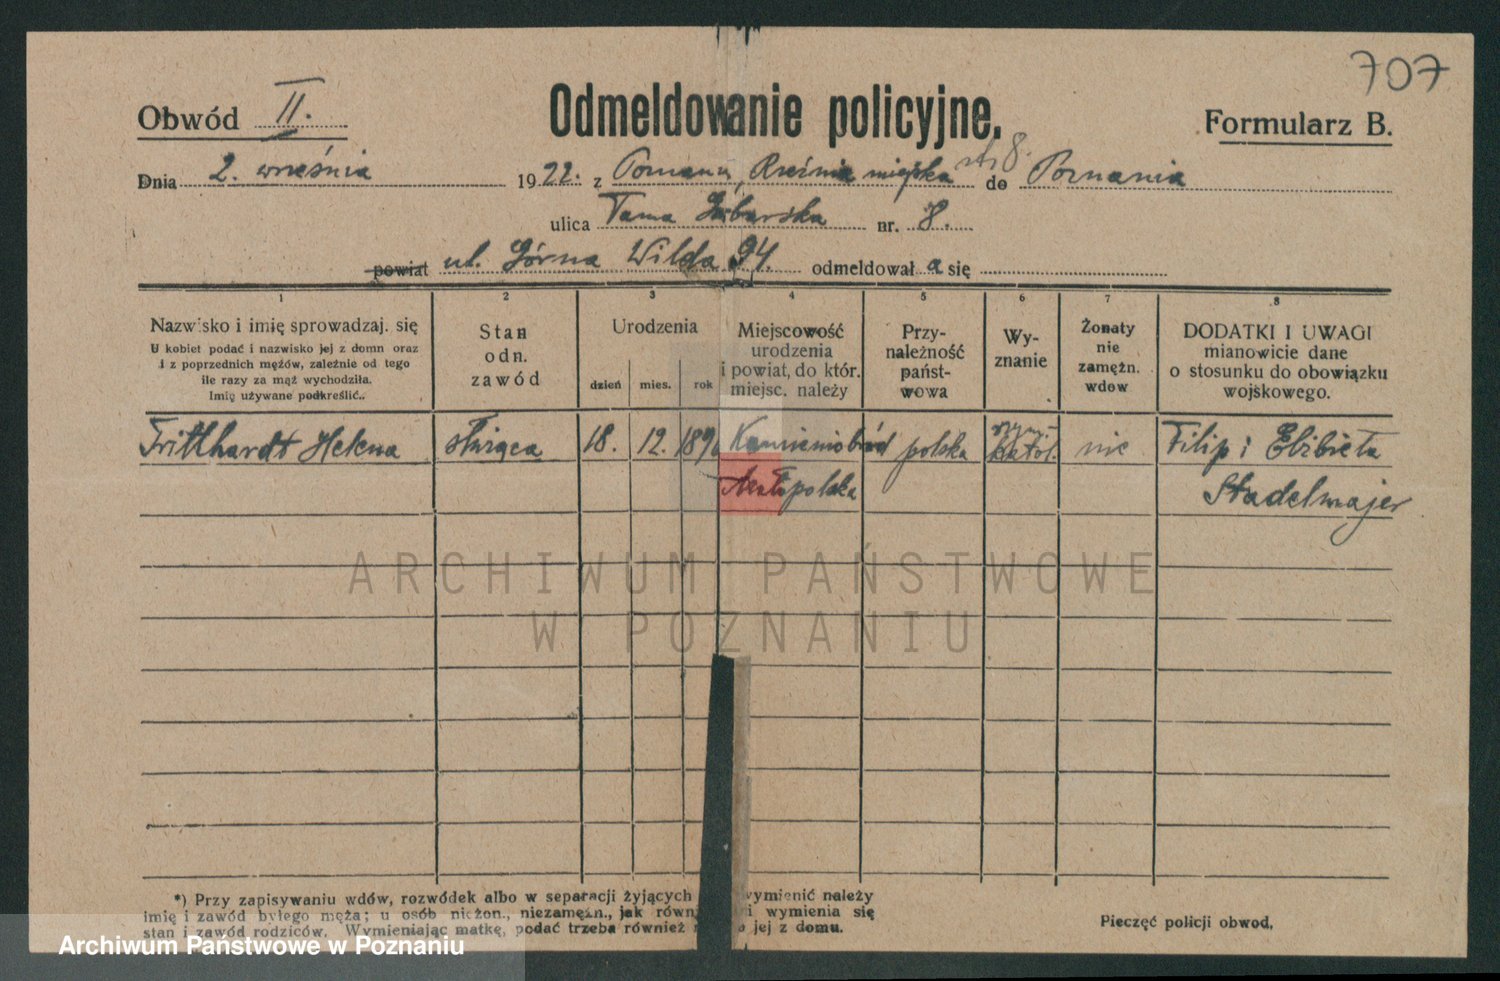 707
Obwód II.
Odmeldowanie policyjne.
Formularz B.
Dnia 2. września 1922. z Poznania, Rzeźnia miejska do Poznania
ulica Tama Garbarska nr. 8.
powiat ul. Górna Wilda 94. odmeldował a się
1 2 3 4 5 6 7 8
Nazwisko i imię sprowadzaj. się
U kobiet podać i nazwisko jej z domn oraz
i z poprzednich mężów, zależnie od tego
ile razy za mąż wychodziła.
Imię używane podkreślić..
Stan
odn.
zawód
Urodzenia
dzień mies. rok
Miejscowość
urodzenia
i powiat, do któr.
miejsc. należy
Przy-
należność
państ-
wowa
Wy-
znanie
Żonaty
nie
zamężn.
wdow
DODATKI I UWAGI
mianowicie dane
o stosunku do obowiązku
wojskowego.
Tritthardt Helena służąca 18. 12. 189 Kamieniobród polska rzym.- katol. nie Filip i Elżbieta
Małopolska Stadelmajer
ARCHIWUM PAŃSTWOWE
W POZNANIU
*) Przy zapisywaniu wdów, rozwódek albo w separacji żyjących wymienić należy
imię i zawód byłego męża; u osób nieżon., niezamężn., jak równ i wymienia się
stan i zawód rodziców. Wymieniając matkę, podać trzeba również jej z domu.
Pieczęć policji obwod.
Archiwum Państwowe w Poznaniu